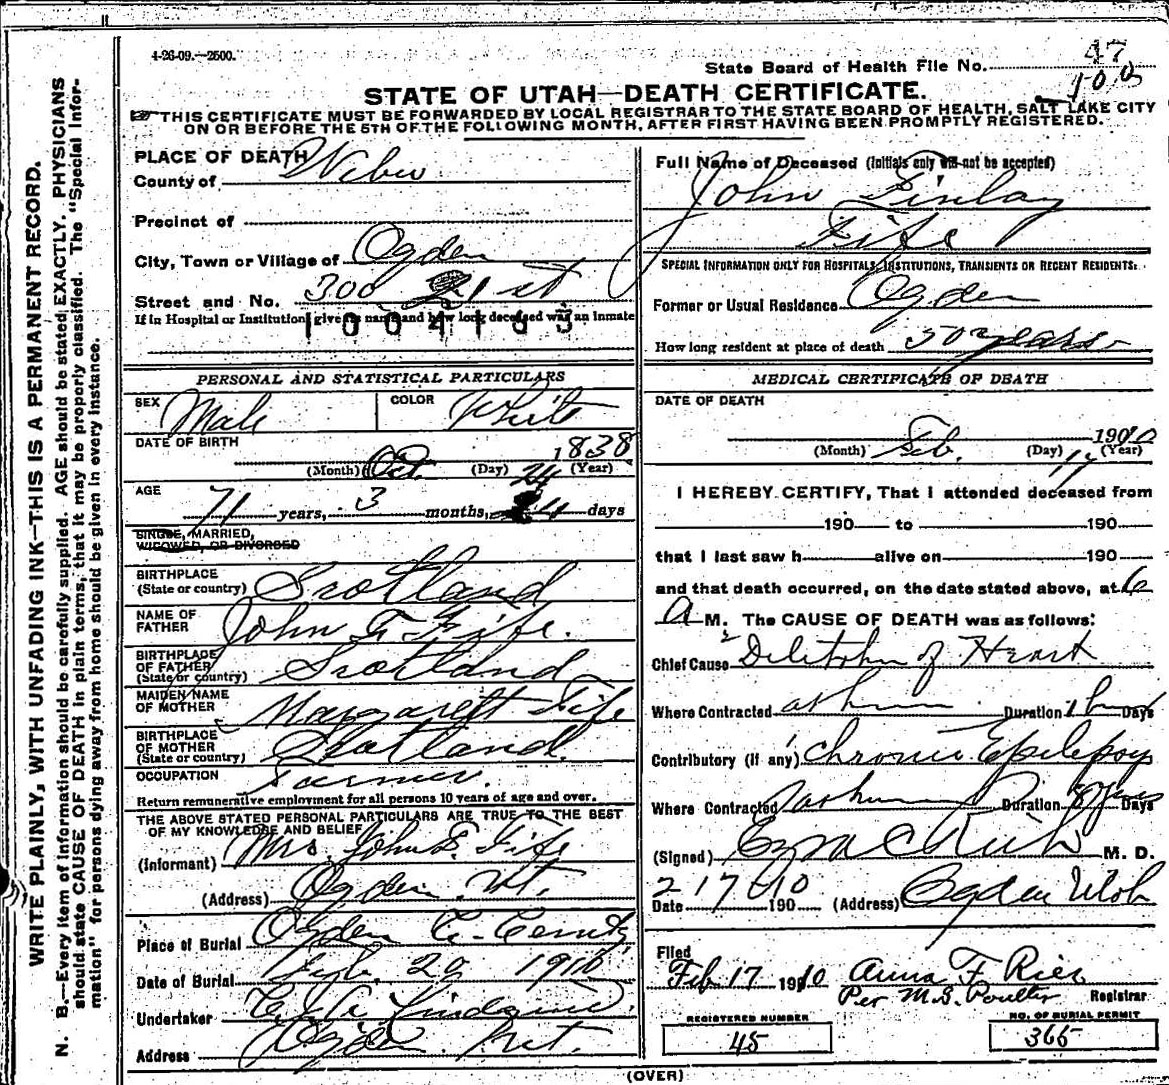 4-26-09.—2500.
State Board of Health File No. 47
100
STATE OF UTAH—DEATH CERTIFICATE.
THIS CERTIFICATE MUST BE FORWARDED BY LOCAL REGISTRAR TO THE STATE BOARD OF HEALTH, SALT LAKE CITY
ON OR BEFORE THE 5TH OF THE FOLLOWING MONTH, AFTER FIRST HAVING BEEN PROMPTLY REGISTERED.
WRITE PLAINLY, WITH UNFADING INK—THIS IS A PERMANENT RECORD.
N. B.—Every item of information should be carefully supplied. AGE should be stated EXACTLY. PHYSICIANS
should state CAUSE OF DEATH in plain terms, that it may be properly classified. The "Special Infor-
mation" for persons dying away from home should be given in every instance.
PLACE OF DEATH
County of Weber
Precinct of
City, Town or Village of Ogden
Street and No. 300 21 st
If in Hospital or Institution, give its name and how long deceased was an inmate
1004163
PERSONAL AND STATISTICAL PARTICULARS
SEX Male COLOR White
DATE OF BIRTH
(Month) Oct. (Day) 24 1838 (Year)
AGE
71 years, 3 months, days
SINGLE, MARRIED,
WIDOWED, OR DIVORCED
BIRTHPLACE
(State or country) Scotland
NAME OF
FATHER John F Fife.
BIRTHPLACE
OF FATHER
(State or country) Scotland
MAIDEN NAME
OF MOTHER Margarett Fife
BIRTHPLACE
OF MOTHER
(State or country) Scotland.
OCCUPATION Farmer.
Return remunerative employment for all persons 10 years of age and over.
THE ABOVE STATED PERSONAL PARTICULARS ARE TRUE TO THE BEST
OF MY KNOWLEDGE AND BELIEF
(Informant) Mrs. John Fife
(Address) Ogden Ut.
Place of Burial Ogden
Date of Burial 20 1910
Undertaker
Address Ogden Ut.
Full Name of Deceased (Initials only will not be accepted)
John Finlay
Fife
SPECIAL INFORMATION ONLY FOR HOSPITALS, INSTITUTIONS, TRANSIENTS OR RECENT RESIDENTS:
Former or Usual Residence Ogden
How long resident at place of death 50 years
MEDICAL CERTIFICATE OF DEATH
DATE OF DEATH
(Month) Feb. (Day) 17 1910 (Year)
I HEREBY CERTIFY, That I attended deceased from
190 to 190
that I last saw h alive on 190
and that death occurred, on the date stated above, at 6
a M. The CAUSE OF DEATH was as follows:
Chief Cause of Heart
Where Contracted at home Duration Days
Contributory (if any) Chronic Epilepsy
Where Contracted at home Duration Days
(Signed) Ezra C Rich M. D.
Date 2 17 1910 (Address) Ogden Utah
Filed
Feb 17 1910 Anna F Rier
Per M.S. Poulter Registrar
REGISTERED NUMBER
45
NO. OF BURIAL PERMIT
365
(OVER)